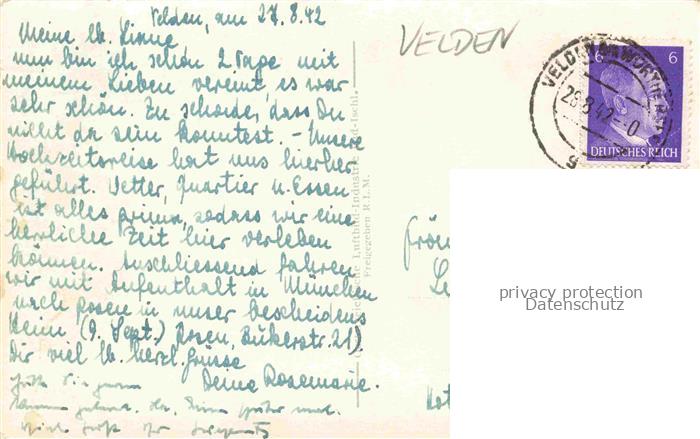 Velden, am 27.8.42
Meine lb.
nun bin ich schon 2 Tage mit
meinem Lieben vereint, es war
sehr schön. Zu schade, dass Du
nicht da sein konntest. - Unsere
Hochzeitsreise hat uns hierher
geführt. Wetter, Quartier u. Essen
ist alles prima, sodass wir eine
herrliche Zeit hier verleben
können. Anschliessend fahren
wir mit Aufenthalt in München
nach Posen in unser bescheidenes
Heim (9. Sept.) Posen, Bükerstr. 21).
Dir viel lb. herzl. Grüsse
Deine Rosemarie.
VELDEN
VELDEN AM WÖRTHERSEE
28.8.42
6 6
DEUTSCHES REICH
Luftbild-Industrie Bad-Ischl.
Freigegeben R.L.M.
privacy protection
Datenschutz